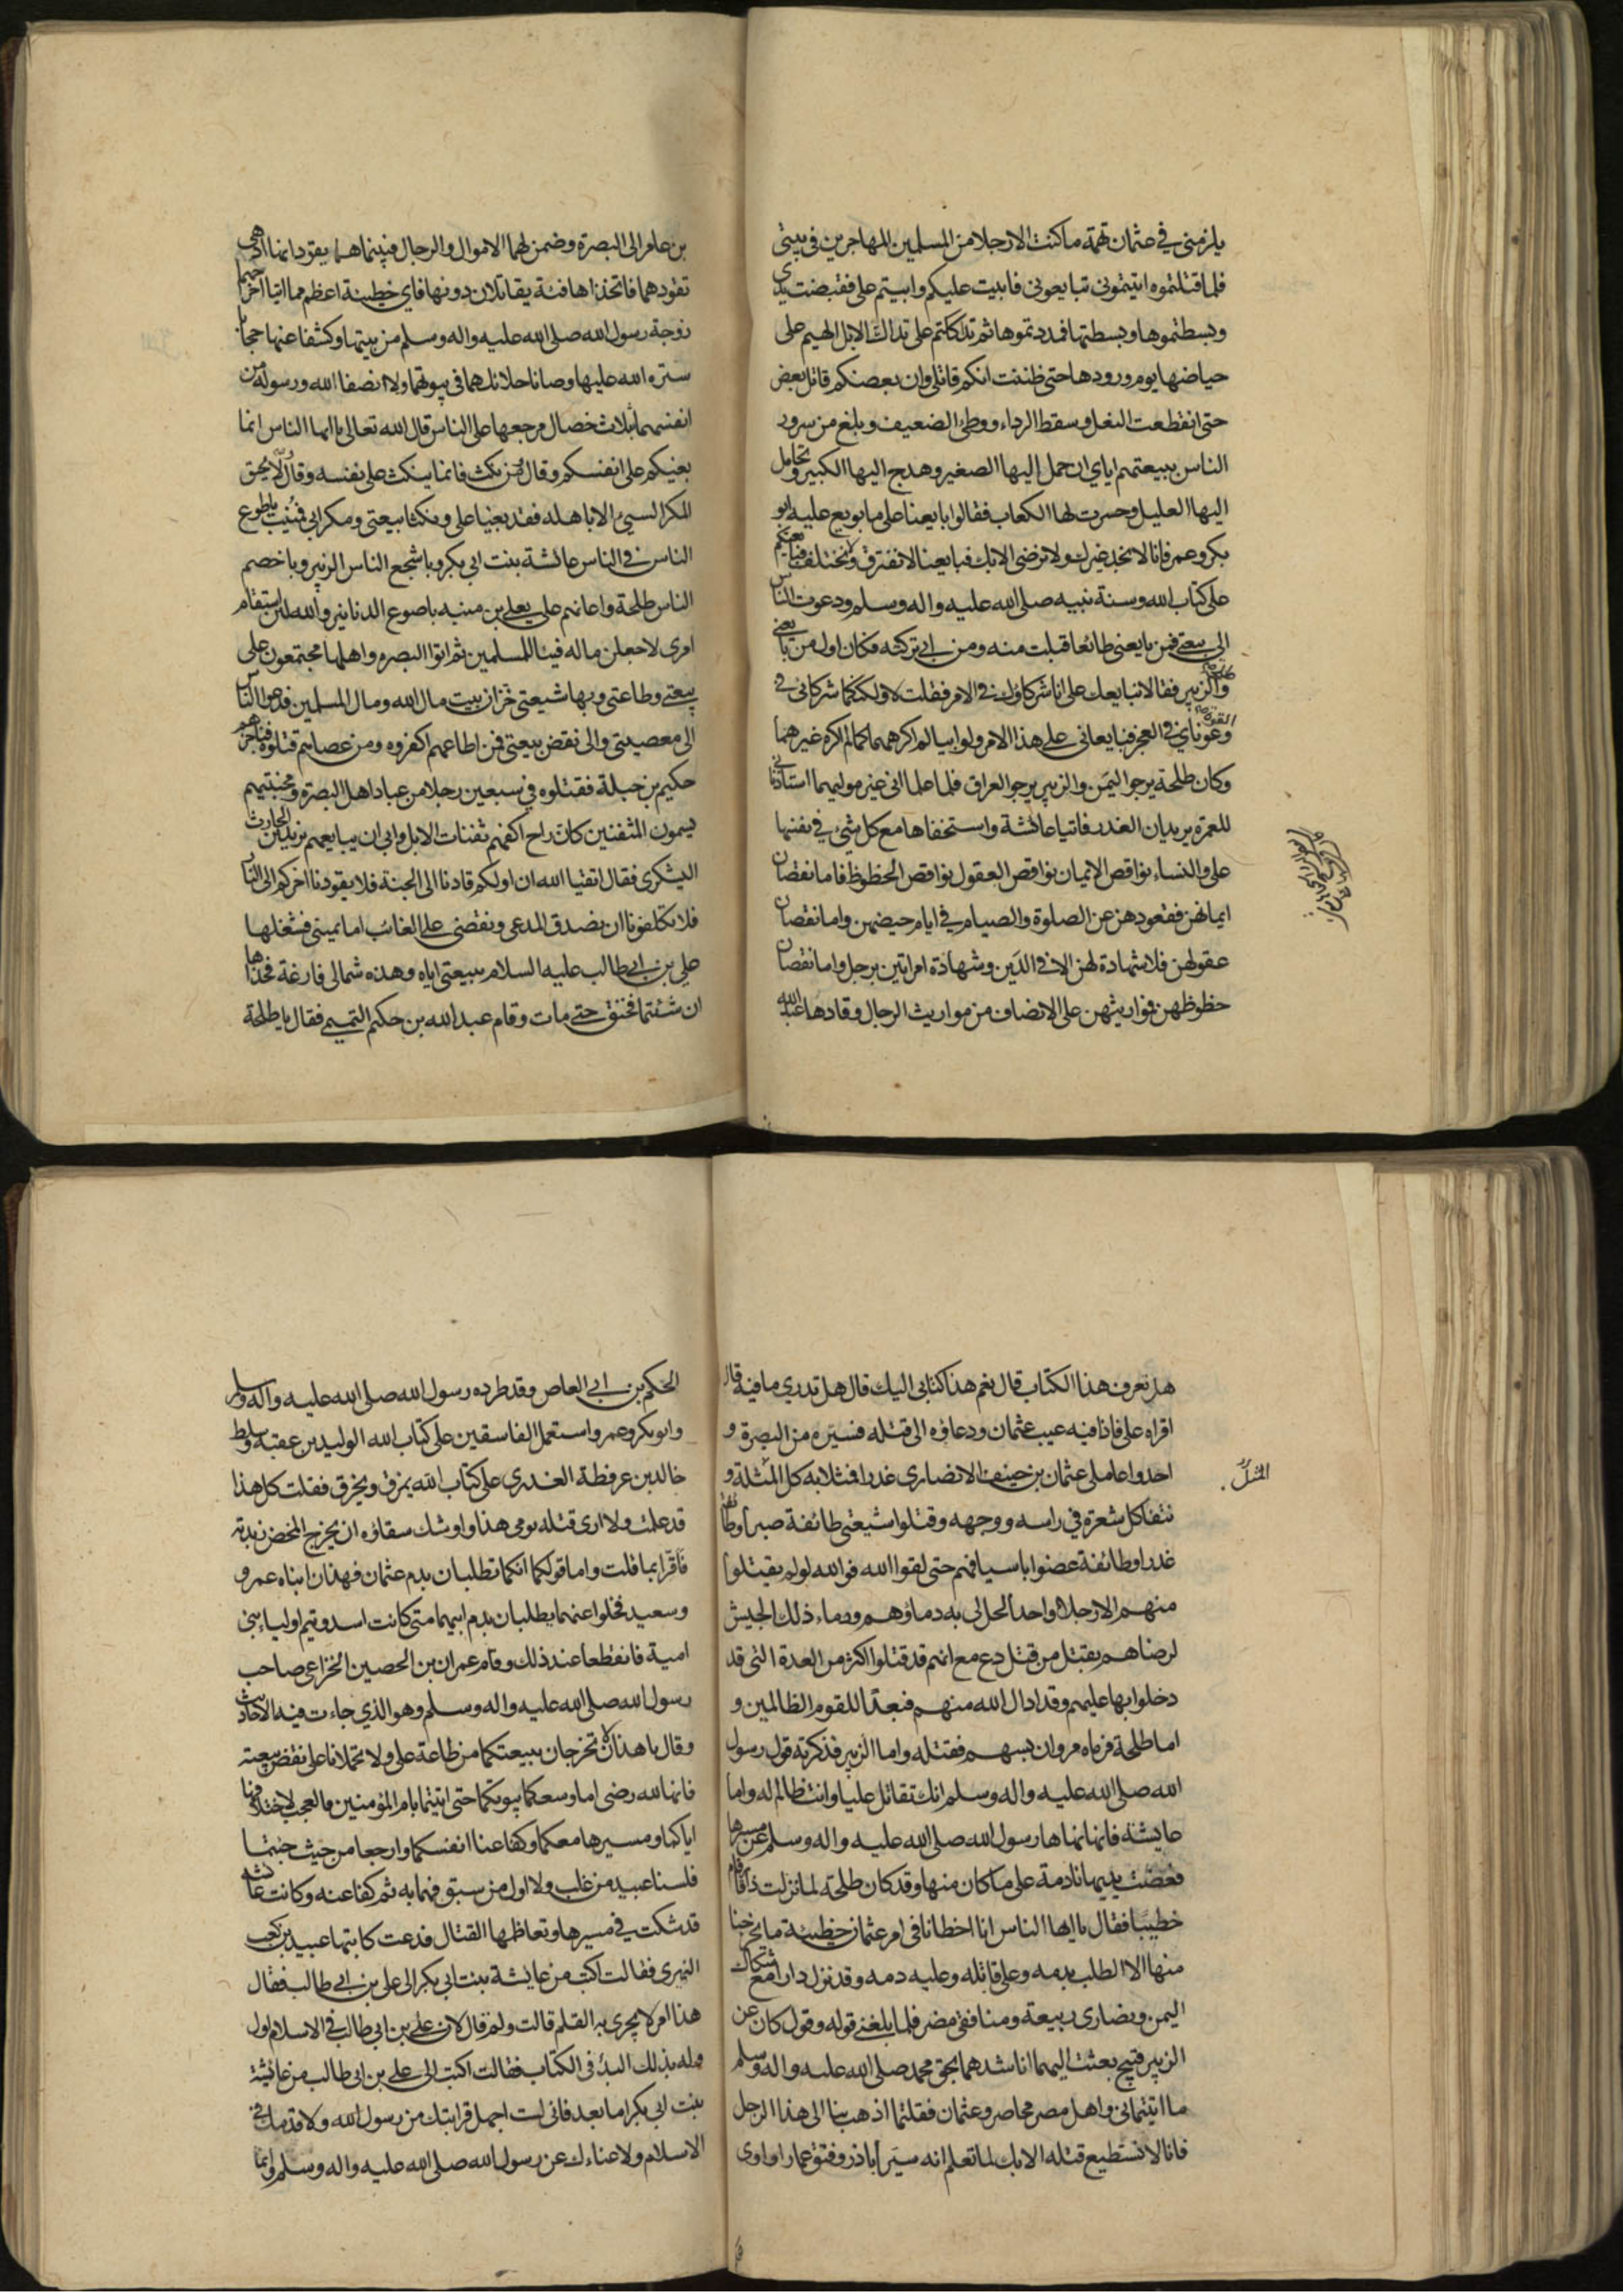 يلزمني في عثمان تهمة ما كنت الا رجلا من المسلمين المهاجرين في بيتي
فلما قتلتموه اتيتموني تبايعوني فابيت عليكم وابيتم على فقبضت يدي
وبسطتموها وبسطتها فمددتموها ثم تداككتم على تداك الابل الهيم على
حياضها يوم ورودها حتى ظننت انكم قاتلي وان بعضكم قاتل بعض
حتى انقطعت النعل وسقط الرداء ووطئ الضعيف وبلغ من سرور
الناس ببيعتهم اياي ان حمل إليها الصغير وهدج اليها الكبير وتحامل
اليها العليل وحسرت لها الكعاب فقالوا بايعنا على ما بويع عليه ابو
بكر وعمر فانا لا نجد غيرك ولا نرضى الا بك فبايعنا لا نفترق ولا نختلف فبايعتكم
على كتاب الله وسنة نبيه صلى الله عليه واله وسلم ودعوت الناس
الى بيعتي فمن بايعني طائعا قبلت منه ومن ابى تركته فكان اول من بايعني
طلحة والزبير فقالا نبايعك على انا شركاؤك في الامر فقلت لا ولكنكما شركائي في
القوة وعوناي في العجز فبايعاني على هذا الامر ولو ابيا لم اكرههما كما لم اكره غيرهما
وكان طلحة يرجو اليمن والزبير يرجو العراق فلما علما اني غير موليهما استاذناني
للعمرة يريدان الغدر فاتيا عائشة واستخفاها مع كل شيء في نفسها
علي والنساء نواقص الإيمان نواقص العقول نواقص الحظوظ فاما نقصان
ايمانهن فقعودهن عن الصلوة والصيام في ايام حيضهن واما نقصان
عقولهن فلا شهادة لهن الا في الدين وشهادة امراتين برجل واما نقصان
حظوظهن فمواريثهن على الانصاف من مواريث الرجال وقادها عبد الله
بن عامر الى البصرة وضمن لهما الاموال والرجال فبينما هما يقودانها اذ هي
تقودهما فاتخذاها فئة يقاتلان دونها فاي خطيئة اعظم مما اتيا اخراجهما
زوجة رسول الله صلى الله عليه واله وسلم من بيتها وكشفا عنها حجابا
ستره الله عليها وصانا حلائلهما في بيوتهما ولا انصفا الله ورسوله من
انفسهما بثلاث خصال مرجعها على الناس قال الله تعالى يا ايها الناس انما
بغيكم على انفسكم وقال فمن نكث فانما ينكث على نفسه وقال ولا يحيق
المكر السيئ الا باهله فقد بغيا على ونكثا بيعتي ومكرا بي فمنيت باطوع
الناس في الناس عائشة بنت ابي بكر وباشجع الناس الزبير وباخصم
الناس طلحة واعانهم علي يعلى بن منيه باصوع الدنانير والله لئن استقام
امرى لاجعلن ماله فيئا للمسلمين ثم اتوا البصره واهلها مجتمعون على
بيعتي وطاعتي وبها شيعتي خزان بيت مال الله ومال المسلمين فدعوا الناس
الى معصيتي والى نقض بيعتي فمن اطاعهم اكفروه ومن عصاهم قتلوه فناجزهم
حكيم بن جبلة فقتلوه في سبعين رجلا من عباد اهل البصرة ومخبتيهم
يسمون المثفنين كان راح اكفهم ثفنات الابل وابى ان يبايعهم يزيد بن الحارث
اليشكرى فقال اتقيا الله ان اولكم قادنا الى الجنة فلا يقودنا اخركم الى النار
فلا تكلفونا ان نصدق المدعى ونقضي على الغائب اما يميني فشغلها
علي بن ابي طالب عليه السلام ببيعتي اياه وهذه شمالى فارغة فخذاها
ان شئتما فخنق حتى مات وقام عبد الله بن حكيم التميمي فقال يا طلحة
هل تعرف هذا الكتاب قال نعم هذا كتابى اليك قال هل تدري ما فيه قال
اقراه على فاذا فيه عيب عثمان ودعاؤه الى قتله فسيره من البصرة و
اخذوا عاملى عثمان بن حنيف الانصارى غدرا فمثلا به كل المثلة و
المثل
نتفا كل شعرة في راسه ووجهه وقتلوا شيعتي طائفة صبرا وطائفة
غدرا وطائفة عضوا باسيافهم حتى لقوا الله فوالله لو لم يقتلوا
منهم الا رجلا واحدا لحل لى به دماؤهم ودماء ذلك الجيش
لرضاهم بقتل من قتل دع مع انهم قد قتلوا اكثر من العدة التي قد
دخلوا بها عليهم وقد ادال الله منهم فبعدا للقوم الظالمين و
اما طلحة فرماه مروان بسهم فقتله واما الزبير فذكرته قول رسول
الله صلى الله عليه واله وسلم انك تقاتل عليا وانت ظالم له واما
عايشة فانها نهاها رسول الله صلى الله عليه واله وسلم عن مسيرها
فعضت يديها نادمة على ما كان منها وقد كان طلحة لما نزلت ذاقار قام
خطيبا فقال يا ايها الناس انا اخطانا في امر عثمان خطيئة ما يخرجنا
منها الا الطلب بدمه وعلى قاتله وعليه دمه وقد نزل دارا مع شكاك
اليمن ونصارى ربيعة ومنافقى مضر فلما بلغني قوله وقول كان عن
الزبير قبيح بعثت اليهما اناشدهما بحق محمد صلى الله عليه واله وسلم
ما اتيتماني واهل مصر محاصرو عثمان فقلتما اذهب بنا الى هذا الرجل
فانا لا نستطيع قتله الا بك لما تعلم انه سير أبا ذر وفتق عمارا واوى
الحكم بن ابي العاص وقد طرده رسول الله صلى الله عليه واله وسلم
وابو بكر وعمر واستعمل الفاسقين على كتاب الله الوليد بن عقبة وسلط
خالد بن عرفطة العذرى على كتاب الله يمزق ويخرق فقلت كل هذا
قد علمت ولا ارى قتله يومى هذا واوشك سقاؤه ان يخرج المخض زبدته
فاقرا بما قلت واما قولكما انكما تطلبان بدم عثمان فهذان ابناه عمرو
وسعيد فخلوا عنهما يطلبان بدم ابيهما متى كانت اسد وتيم اولياء بني
امية فانقطعا عند ذلك وقام عمران بن الحصين الخزاعي صاحب
رسول الله صلى الله عليه واله وسلم وهو الذي جاءت فيه الاحاديث
وقال يا هذان لا تخرجان ببيعتكما من طاعة على ولا تحملانا على نقض بيعته
فانها لله رضى اما وسعكما بيوتكما حتى اتيتما بام المؤمنين فالعجب لاختلافها
اياكما ومسيرها معكما وكفا عنا انفسكما وارجعا من حيث جئتما
فلسنا عبيد من غلب ولا اول من سبق فهما به ثم كفا عنه وكانت عائشه
قد شكت في مسيرها وتعاظمها القتال فدعت كاتبها عبيد بن كعب
النميرى فقالت اكتب من عايشة بنت ابي بكر الى على بن ابي طالب فقال
هذا امر لا يجرى به القلم قالت ولم قال لان على بن ابي طالب في الاسلام اول
وله بذلك البدؤ في الكتاب فقالت اكتب الى على بن ابي طالب من عائشة
بنت ابي بكر اما بعد فانى لست اجهل قرابتك من رسول الله ولا قدمك في
الاسلام ولا عناءك عن رسول الله صلى الله عليه واله وسلم وانما